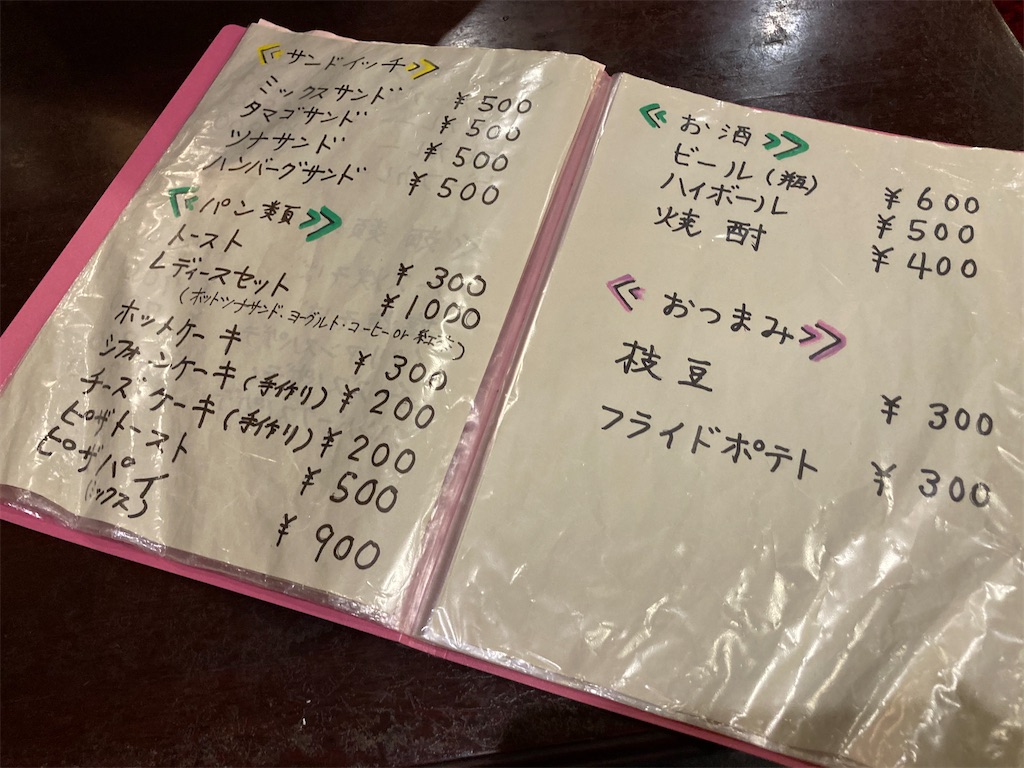 ≪サンドイッチ≫
ミックスサンド ¥500
タマゴサンド ¥500
ツナサンド ¥500
ハンバーグサンド ¥500
≪パン類≫
トースト ¥300
レディースセット ¥1000
(ホットツナサンド・ヨーグルト・コーヒーor紅茶)
ホットケーキ ¥300
シフォンケーキ(手作り) ¥200
チーズケーキ(手作り) ¥200
ピザトースト ¥500
ピザパイ
(ミックス) ¥900
≪お酒≫
ビール(瓶) ¥600
ハイボール ¥500
焼酎 ¥400
≪おつまみ≫
枝豆 ¥300
フライドポテト ¥300